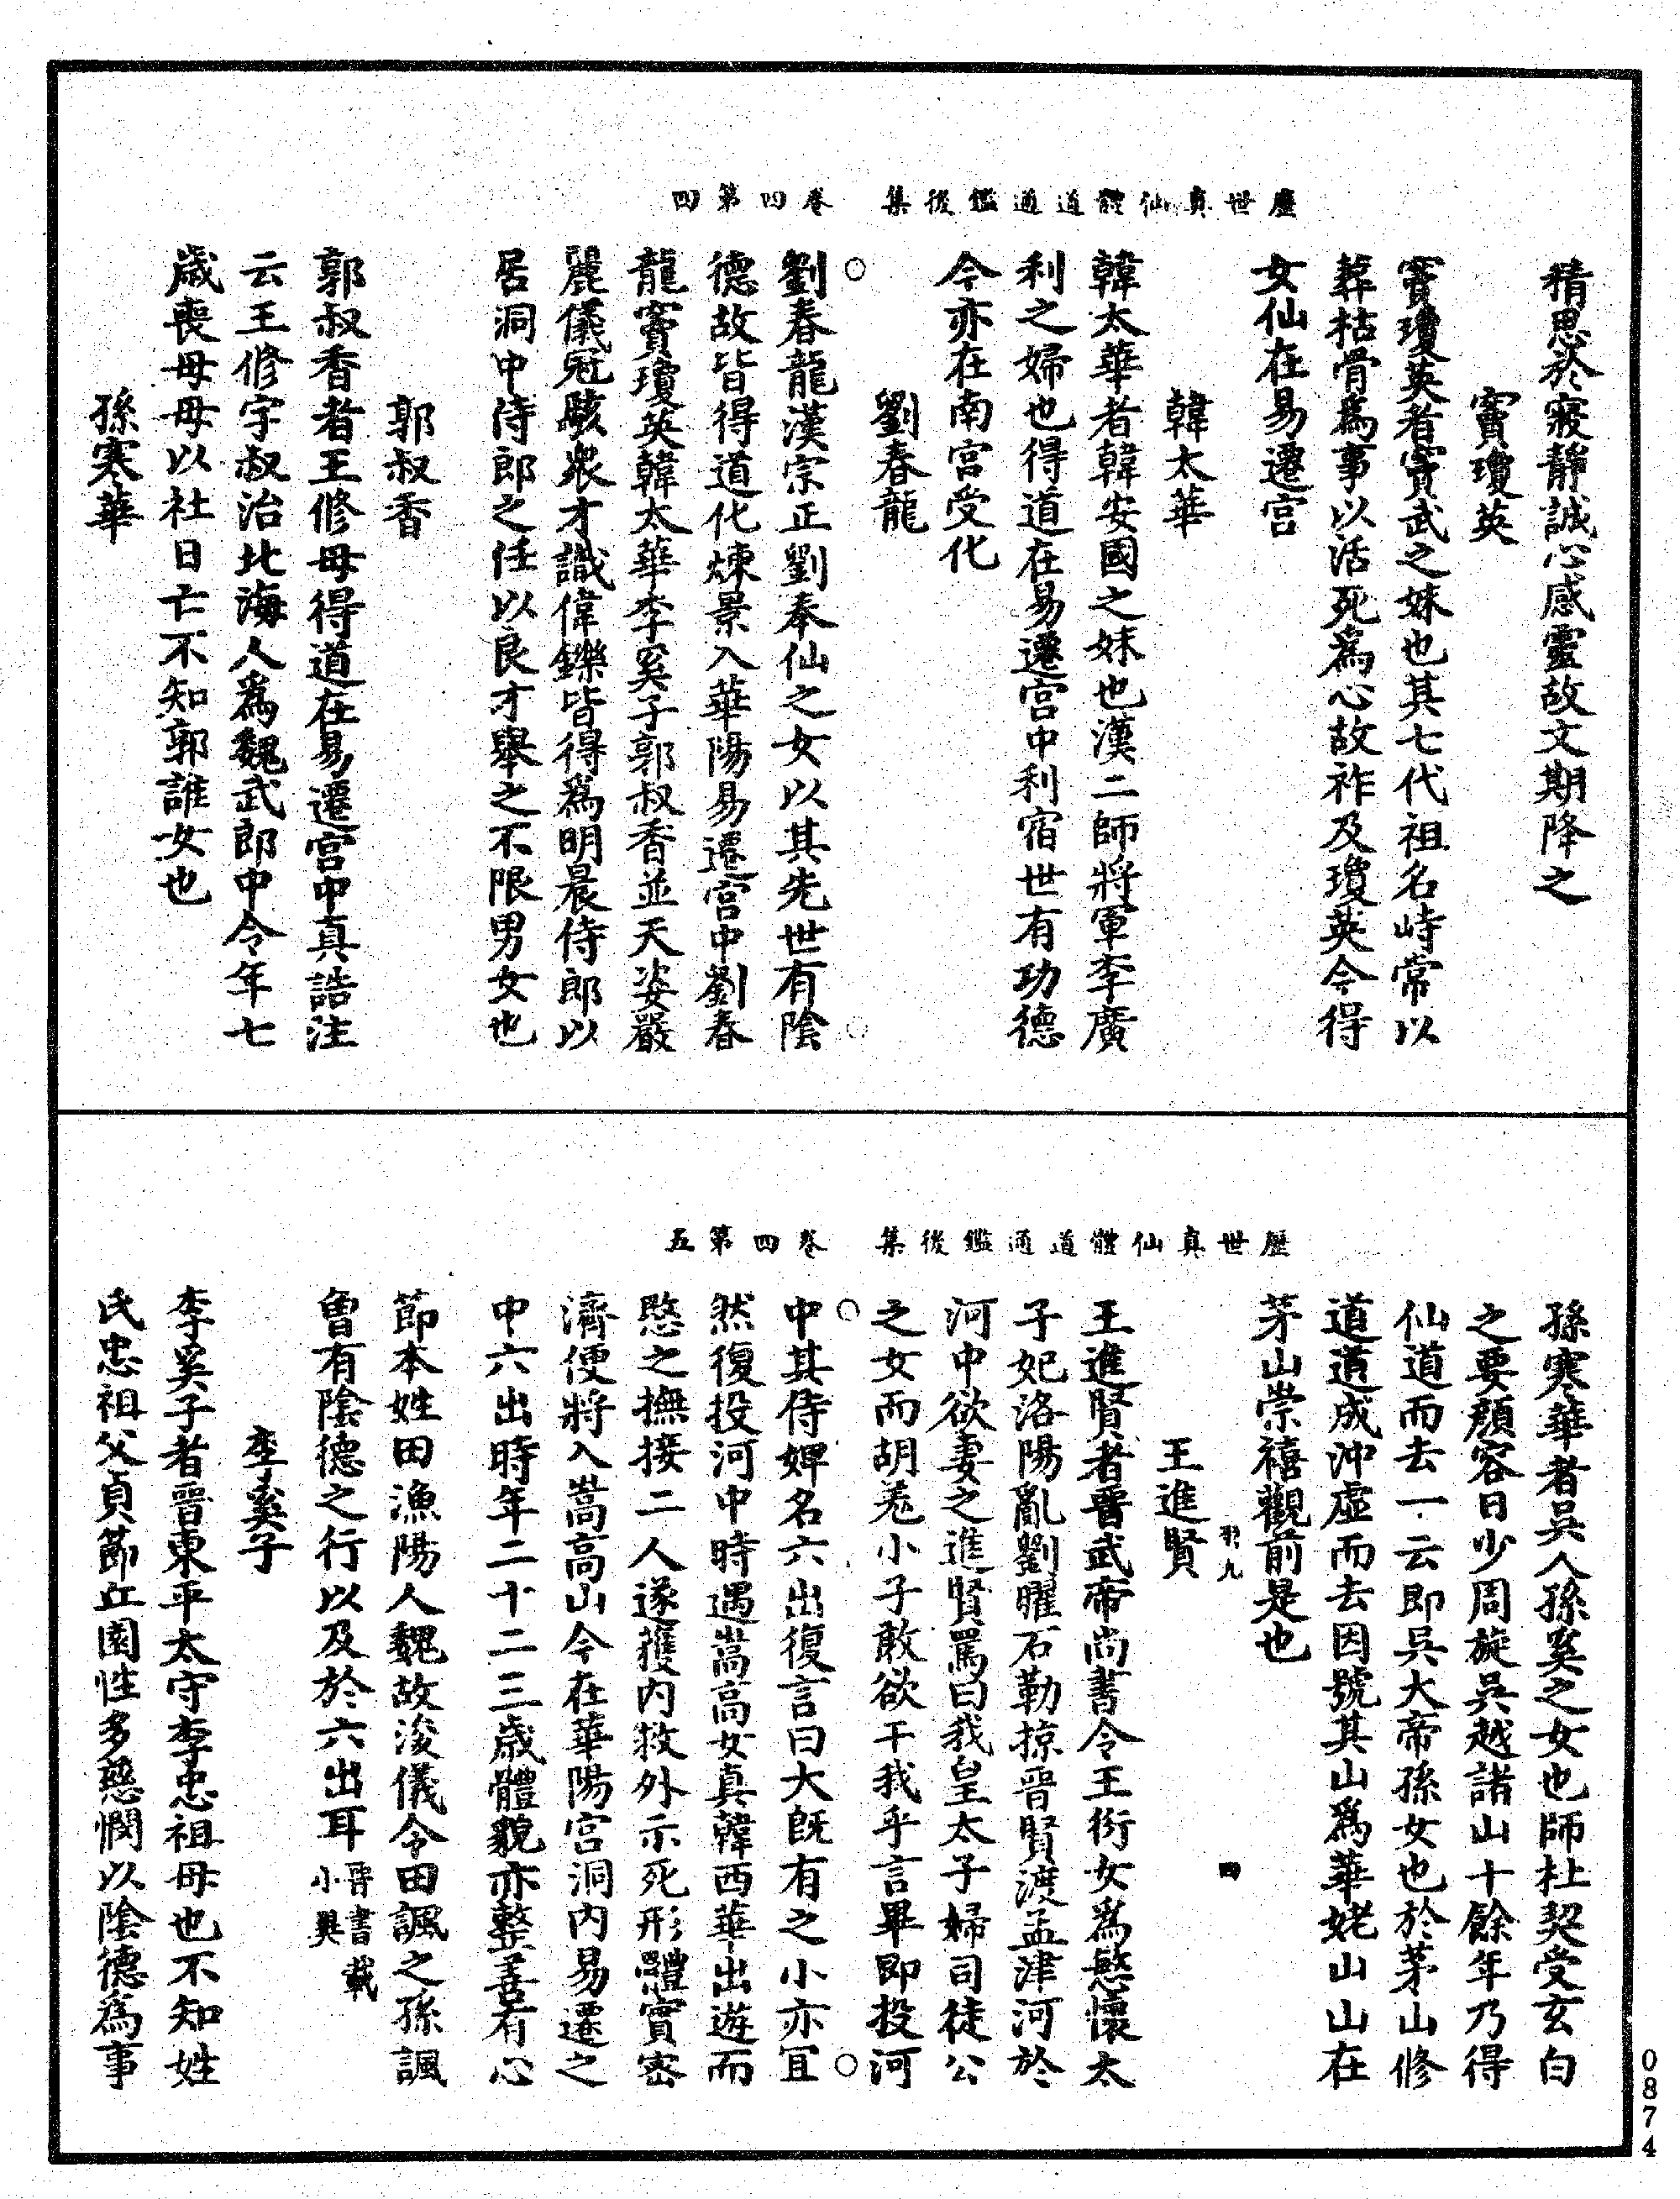 歷世真仙體道通鑑後集　卷四第四
精思於寢靜誠心感靈故文期降之
竇瓊英
竇瓊英者竇武之妹也其七代祖名峙常以
葬枯骨爲事以活死爲心故祚及瓊英令得
女仙在易遷宮
韓太華
韓太華者韓安國之妹也漢二師將軍李廣
利之婦也得道在易遷宮中利宿世有功德
今亦在南宮受化
劉春龍
劉春龍漢宗正劉奉仙之女以其先世有陰
德故皆得道化煉景入華陽易遷宮中劉春
龍竇瓊英韓太華李奚子郭叔香並天姿嚴
麗儀冠駭衆才識偉鑠皆得爲明晨侍郎以
居洞中侍郎之任以良才舉之不限男女也
郭叔香
郭叔香者王修母得道在易遷宮中真誥注
云王修字叔治北海人爲魏武郎中令年七
歲喪母母以社日亡不知郭誰女也
孫寒華
歷世真仙體道通鑑後集　卷四第五
孫寒華者吳人孫奚之女也師杜契受玄白
之要顏容日少周旋吳越諸山十餘年乃得
仙道而去一云即吳大帝孫女也於茅山修
道道成沖虛而去因號其山爲華姥山山在
茅山崇禧觀前是也
羽九　四
王進賢
王進賢者晉武帝尚書令王衍女爲愍懷太
子妃洛陽亂劉曜石勒掠晋賢渡孟津河於
河中欲妻之進賢罵曰我皇太子婦司徒公
之女而胡羌小子敢欲干我乎言畢即投河
中其侍婢名六出復言曰大既有之小亦宜
然復投河中時遇嵩高女真韓西華出遊而
愍之撫接二人遂獲內救外示死形體實密
濟便將入嵩高山今在華陽宮洞內易遷之
中六出時年二十二三歲體貌亦整善有心
節本姓田漁陽人魏故浚儀令田諷之孫諷
曽有陰德之行以及於六出耳晉書載小異
李奚子
李奚子者晉東平太守李忠祖母也不知姓
氏忠祖父貞節丘園性多慈憫以陰德爲事
0874